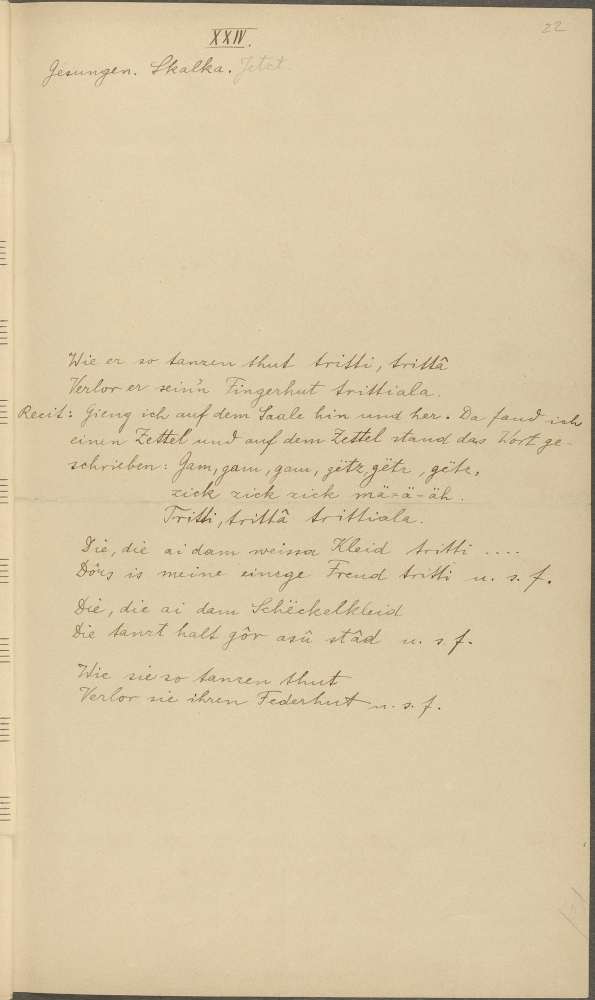 22
XXIV.
Gesungen. Skalka. Jetet.
Wie er so tanzen thut tritti, trittâ
Verlor er sein'n Fingerhut trittiala.
Recit: Gieng ich auf dem Saale hin und her. Da fand ich
einen Zettel und auf dem Zettel stand das Wort ge-
schrieben: Gam, gam, gam, gëtz, gëtz, gëtz,
zick zick zick mä=ä-äh.
Tritti, trittâ trittiala.
Die, die ai dam weissa Kleid tritti ....
Dôrs is meine einzge Freud tritti u. s. f.
Die, die ai dam Schëckelkleid
Die tanzt halt gôr asû stâd u. s. f.
Wie sie so tanzen thut
Verlor sie ihren Federhut u. s. f.